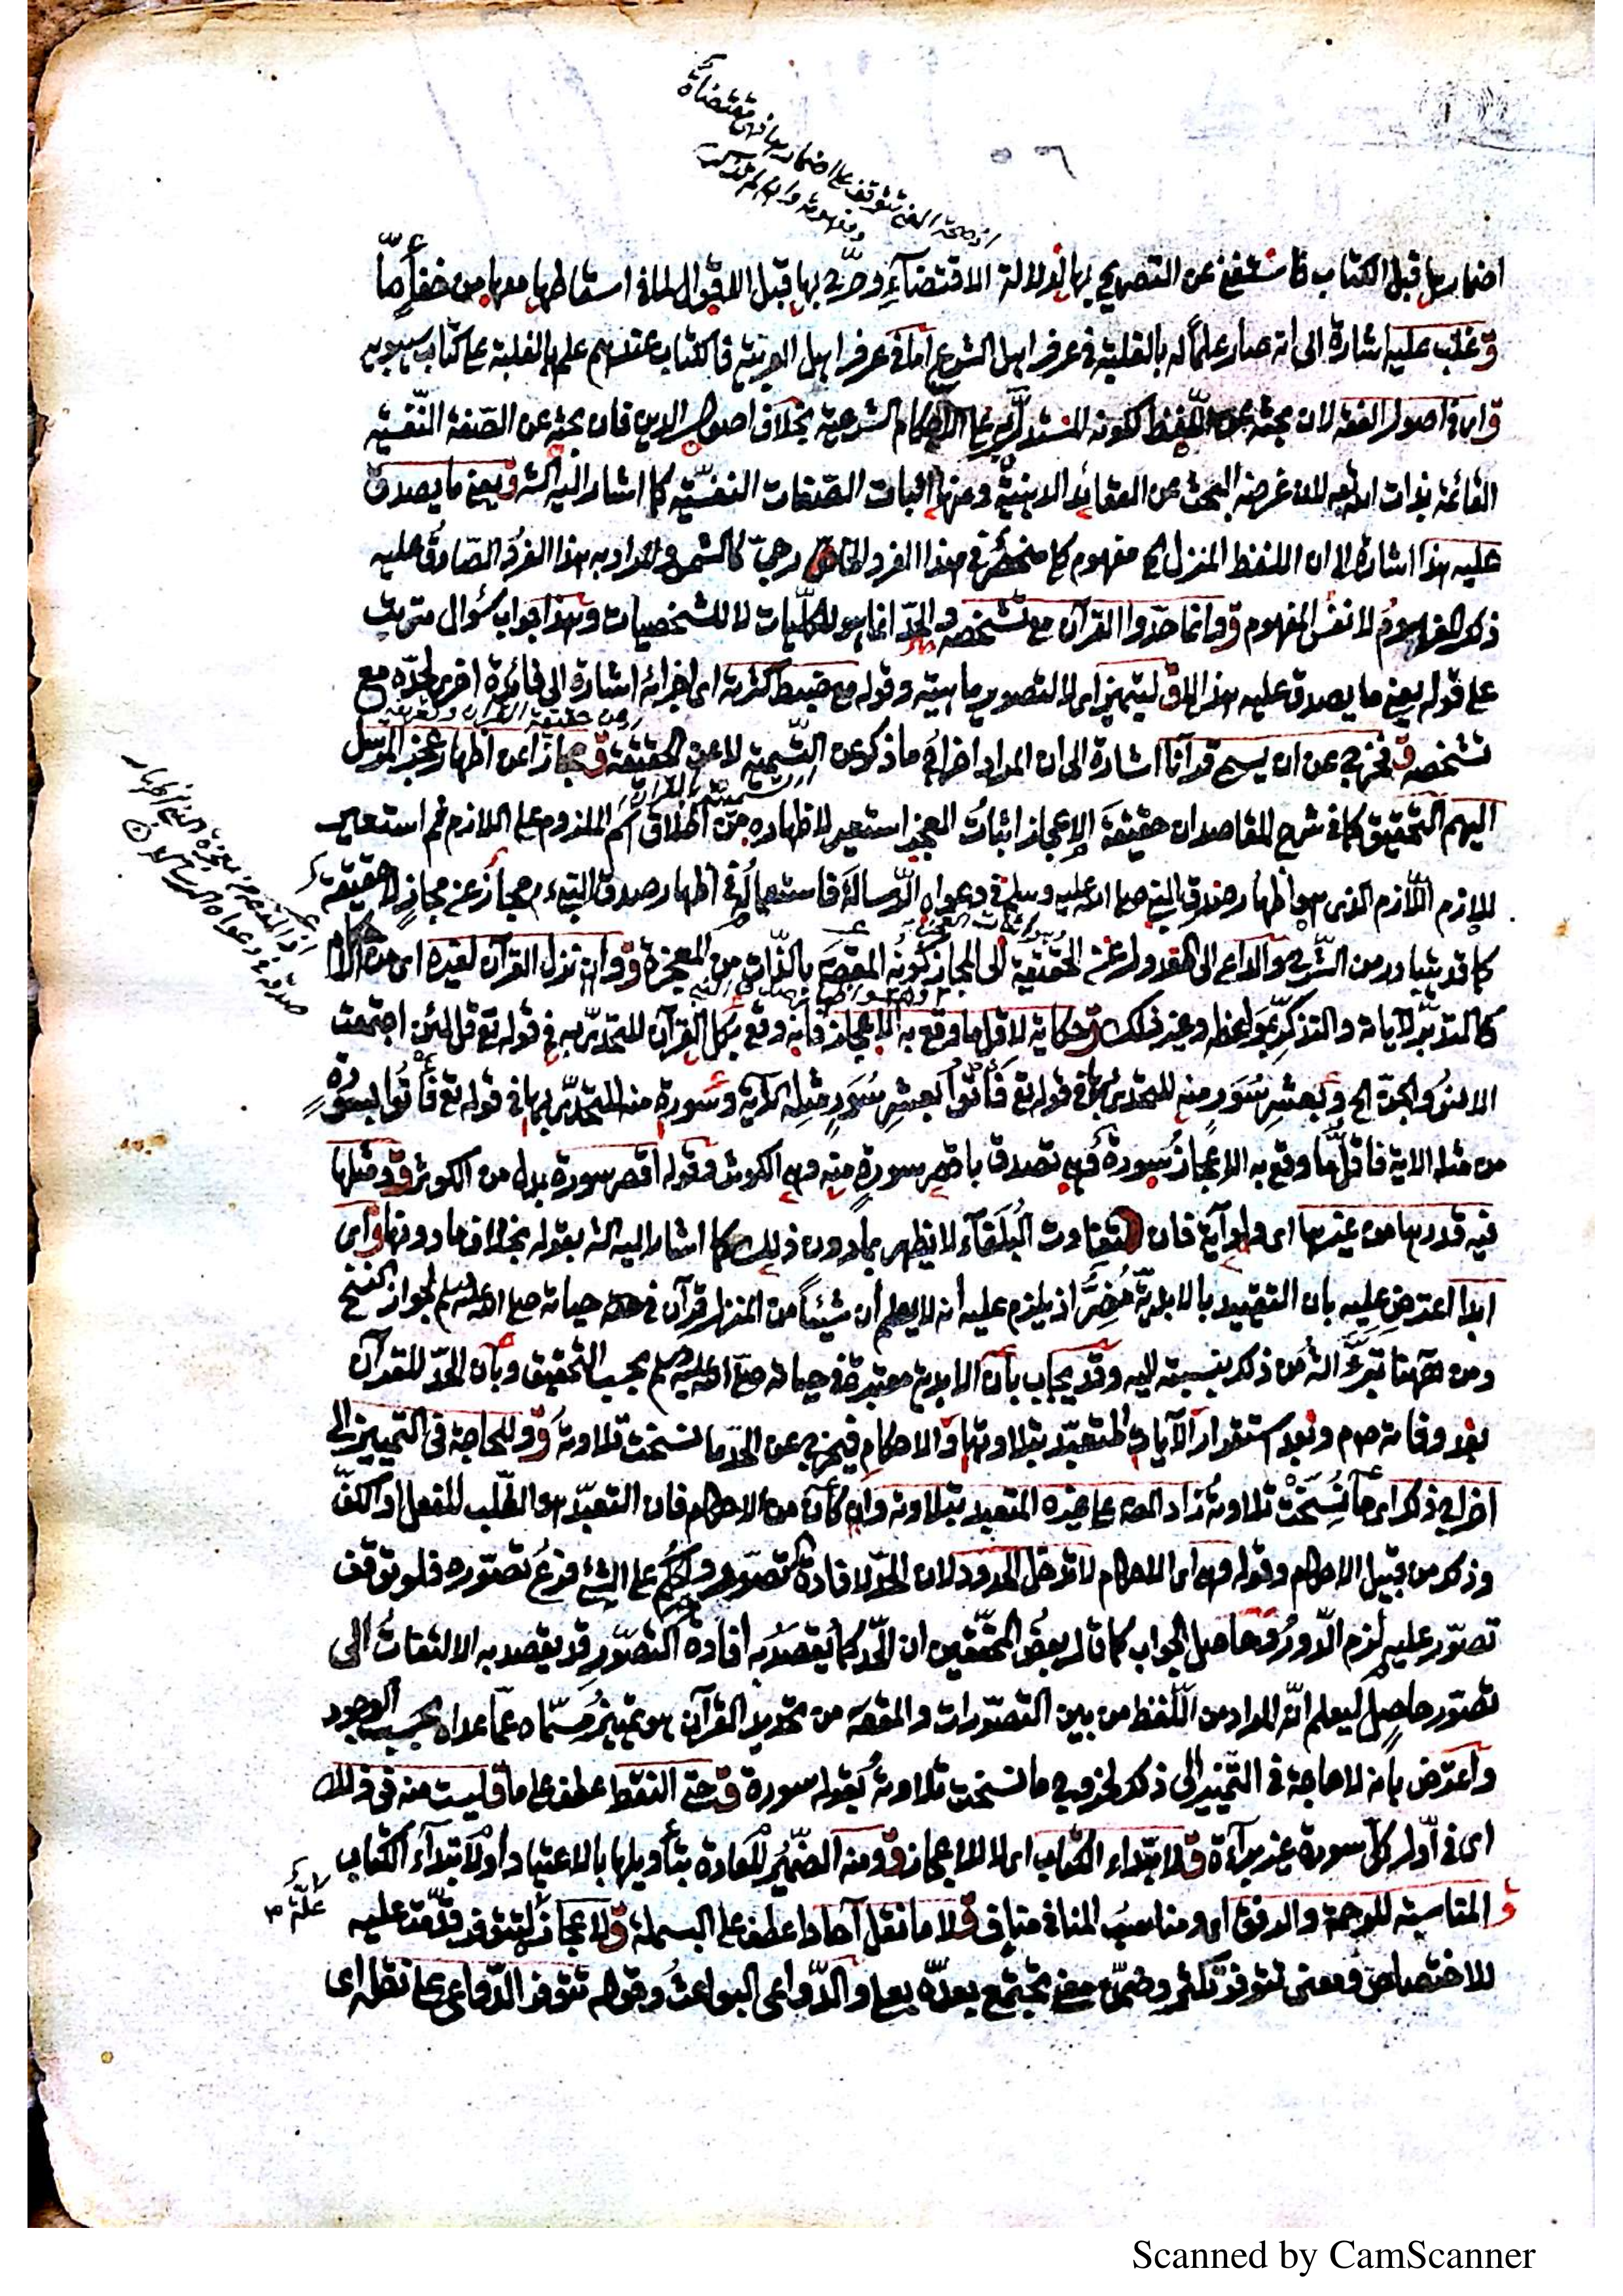 اضمارها قبل الكتاب فاستغنى عن التصريح بها لدلالة الاقتضاء وصرح بها قبل الاقوال لما في اسقاطها معها من خفأ ما
ق وغلب عليه اشارة الى انه صار علما له بالغلبة في عرف اهل الشرع اما في عرف اهل العربية فالكتاب عندهم علم بالغلبة على كتاب سيبويه
ق اى في اصول الفقه لان بحثه عن اللفظ لكونه المستدل به على الاحكام الشرعية بخلاف اصول الدين فان بحثه عن الصفة النفسية
القائمة بذات الله تعه لان غرضه البحث عن العقائد الدينية ومنها اثبات الصفات النفسية كما اشار اليه الشه ق يعنى ما يصدق
عليه هذا اشارة الى ان اللفظ المنزل الخ مفهوم كلى منحصر في هذا الفرد الخارجى كالشمس والمراد به هذا الفرد الصادق عليه
ذكر المفهوم لا نفس المفهوم ق وانما حدوا القرآن مع تشخصه والحد انما هو للكليات لا للشخصيات وهذا جواب سؤال مترتب
على قوله يعنى ما يصدق عليه هذا الخ ق ليتميز اى لا لتصوير ماهيته وقوله مع ضبط كثرته اى اجزائه اشارة الى فائدة اخرى لحده مع
تشخصه ق فخرج عن ان يسمى قرآنا اشارة الى ان المراد اخراج ما ذكر عن التسمية لا عن الحقيقة ق مجازا عن اظهار عجز المرسل
اليهم التحقيق كما في شرح المقاصد ان حقيقة الاعجاز اثبات العجز استعير لاظهاره من اطلاق اسم الملزوم على اللازم ثم استعير
للازم اللازم الذى هو اظهار صدق النبي صلى الله عليه وسلم في دعواه الرسالة فاستعماله في اظهار صدق النبيء مجاز عن مجاز لا حقيقة
كما قد يتبادر من الشرح والداعى الى العدول عن الحقيقة الى المجاز كونه المقصد بالذات من المعجزة ق وان نزل القرآن لغيره اى من
كالتدبر لآياته والتذكر بمواعظه وغير ذلك ق حكاية لاقل ما وقع به الاعجاز فانه وقع بكل القرآن للتحدى به في قوله تع قل لئن اجتمعت
الانس والجن الخ وبعشر سور منه للتحدى بها في قوله تع فأتوا بعشر سور مثله الآية وسورة منه للتحدى بها في قوله تع فأتوا بسورة
من مثله الاية فاقل ما وقع به الاعجاز سورة فهى تصدق باقصر سورة منه وهى الكوثر وقوله اقصر سورة بدل من الكوثر ق ومثلها
فيه قدرها من غيرها اى ولو آية فان تفاوت البلغاء لا يظهر بما دون ذلك كما اشار اليه الشه بقوله بخلاف ما دونها ق اى
ابدا اعترض عليه بان التقييد بالابدية مضر اذ يلزم عليه انه لا يعلم ان شيئا من المنزل قرآن في حياته صلى الله عليه وسلم لجواز النسخ
ومن ههنا تبرأ الشه من ذكر بنسبته اليه وقد يجاب بأن الابدية معتبرة في حياته صلى الله عليه وسلم بحسب التحقيق وبأن الحد للقرآن
بعد وفاته صم وبعد استقرار الآيات المتعبد بتلاوتها والاحكام فيخرج عن الحد ما نسخت تلاوته ق وللحاجة في التمييز الى
اخراج ذكر اى ما نسخت تلاوته زاد المصه على غيره المتعبد بتلاوته وان كان من الاحكام فان التعبد هو الطلب للفعل او الكف
وذكر من قبيل الاحكام وقوله وهى اى الاحكام لا تدخل الحدود لان الحد لافادة تصور والحكم على الشئ فرع تصوره فلو توقف
تصور عليه لزم الدور وحاصل الجواب كما قال بعض المحققين ان الحد كما يقصد به افادة التصور قد يقصد به الالتفات الى
تصور حاصل ليعلم انه المراد من اللفظ من بين التصورات والمقصه من تحديد القرآن هو تمييز مسماه عما عداه بحسب الوجود
واعترض بأنه لا حاجة في التمييز الى ذكر لخروج ما نسخت تلاوته بقوله سورة ق حتى النقط عطف على ما ق ليست منه في ذلك
اى في أول كل سورة غير برآءة ق لابتداء الكتاب اى لا للاعجاز ق ومنه الضمير للعادة بتأويلها بالاعتياد او لابتدآء الكتاب
المناسبة للرحمة والرفق اى ومناسب المنافى مناف ق لا ما نقل آحادا عطف على البسملة ق لاعجازه لتتوفر قدمت عليه
للاختصاص ومعنى تتوفر تكثر وضمن معنى تجتمع بعده بعلى والدواعى البواعث وقوله تتوفر الدواعى على نقله اى
Scanned by CamScanner